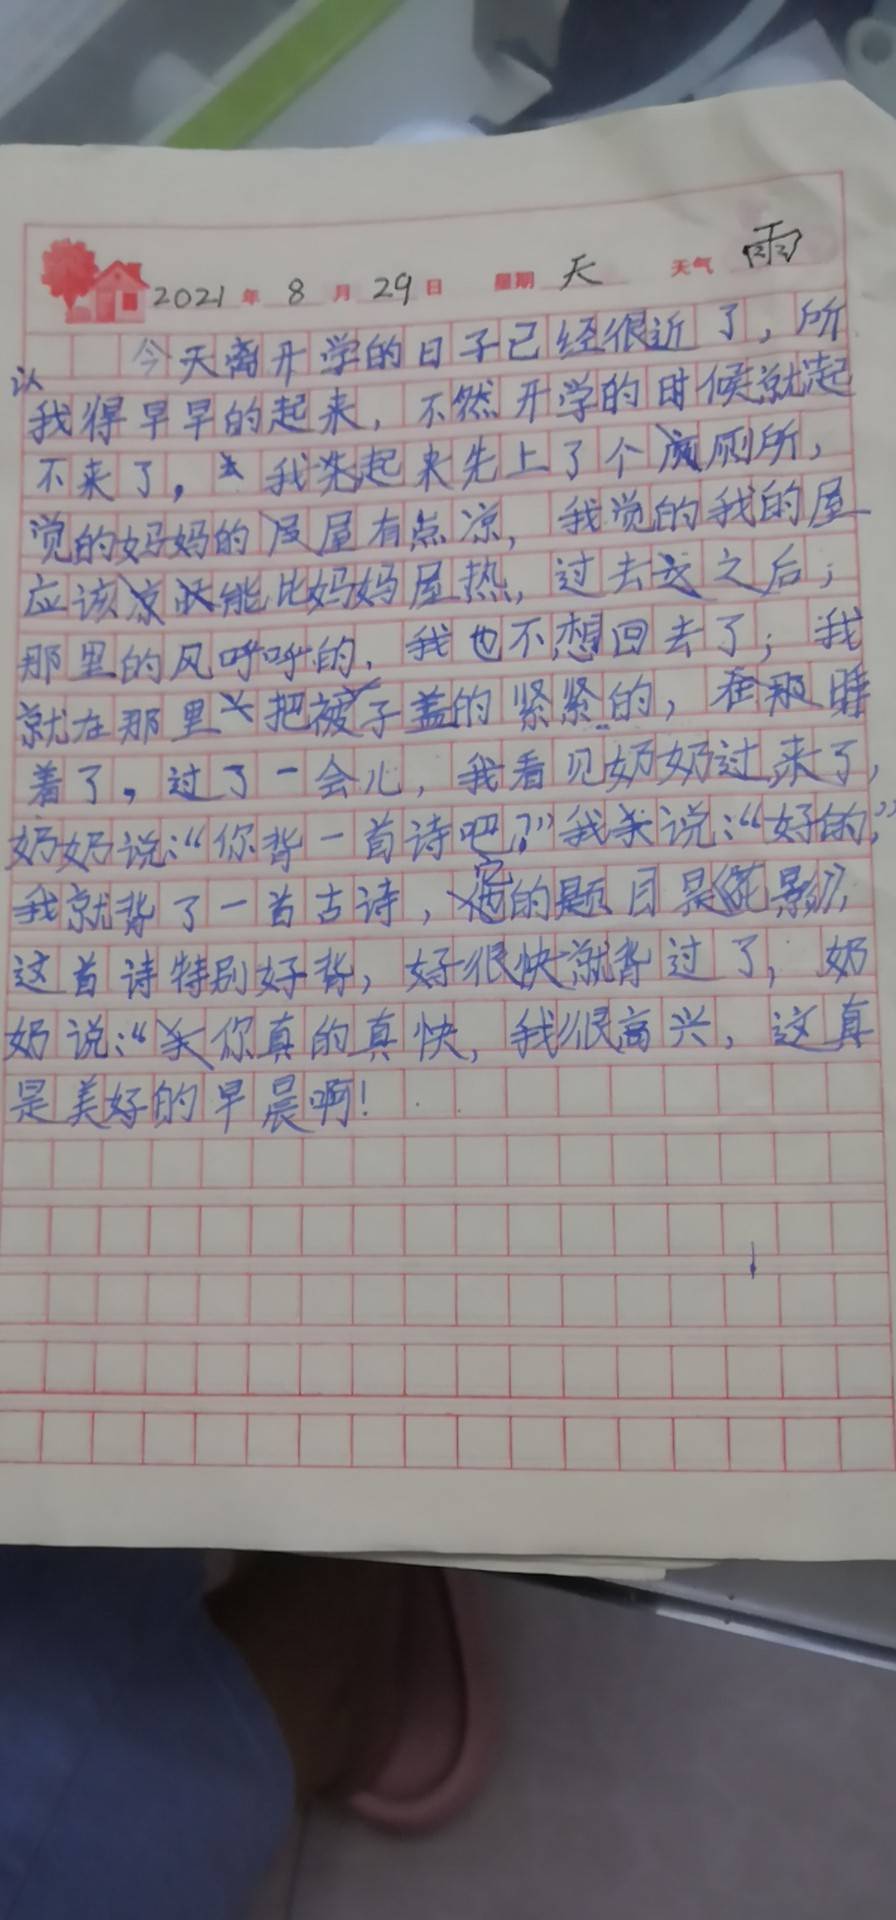 2021年 8月 29日 星期 天 天气 雨
今天离开学的日子已经很近了，所
以我得早早的起来，不然开学的时候就起
不来了，我先起来先上了个厕所，
觉的妈妈的屋有点凉，我觉的我的屋
应该能比妈妈屋热，过去之后；
那里的风呼呼的，我也不想回去了；我
就在那里把被子盖的紧紧的，在那睡
着了，过了一会儿，我看见奶奶过来了，
奶奶说：“你背一首诗吧？”我说：“好的，”
我就背了一首古诗，它的题目是《花影》，
这首诗特别好背，好很快就背过了，奶
奶说：“你真的真快，我很高兴，这真
是美好的早晨啊！